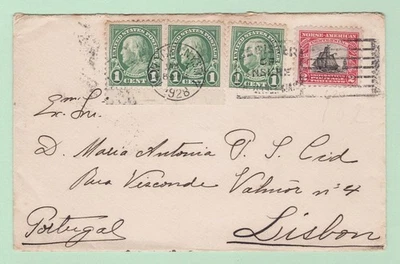 UNITED STATES POSTAGE
1 CENT 1
UNITED STATES POSTAGE
1 1
UNITED STATES POSTAGE
1
NORSE-AMERICAN
2 2
1926
Exma. Sra.
D. Maria Antonia P. S. Cid
Rua Visconde Valmôr nº 4
Portugal
Lisbon